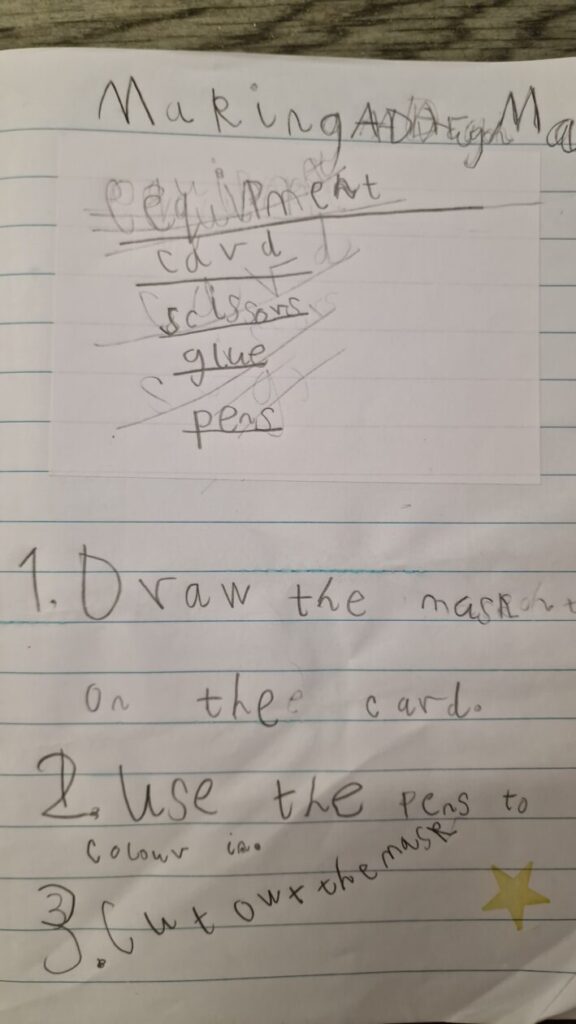 Making Ma
equipment
card
scissors
glue
pens
1. Draw the mask
on the card.
2. Use the pens to
colour in.
3. Cut out the mask